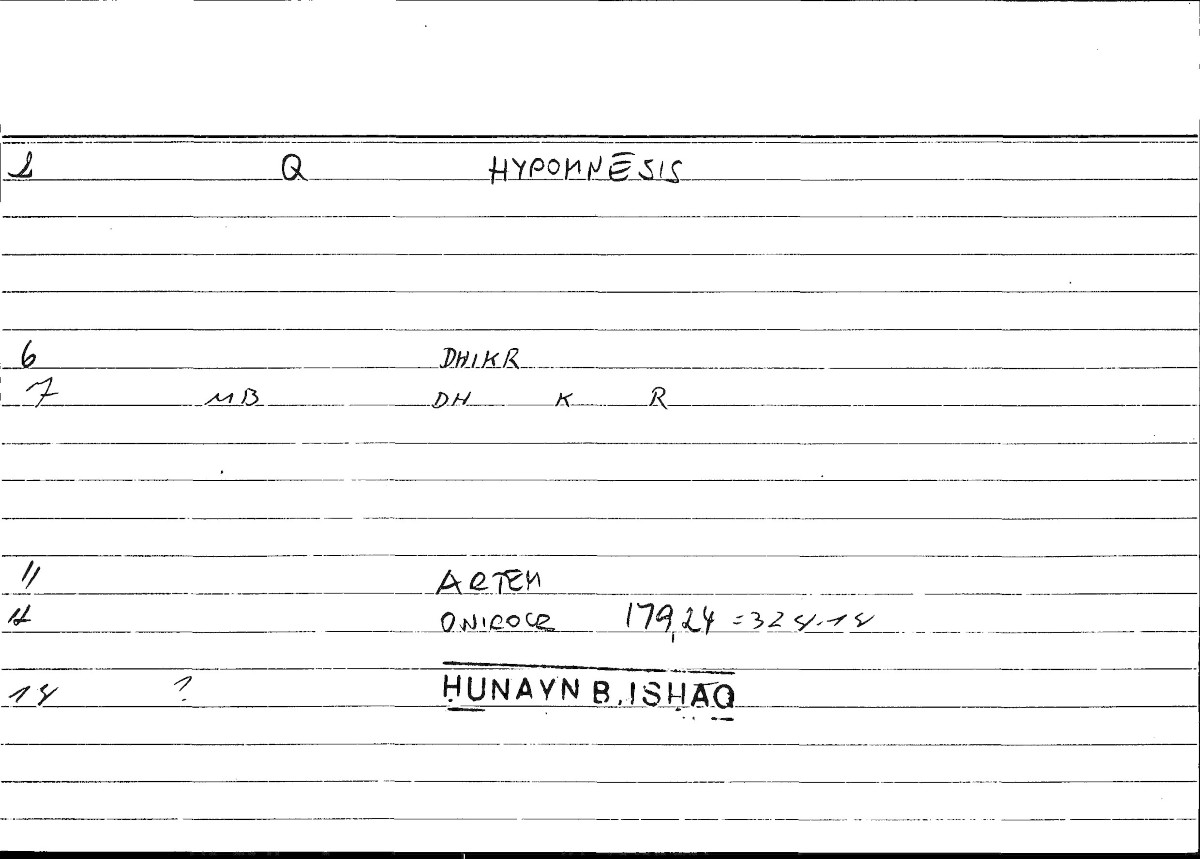 2 Q HYPOMNĒSIS
6 DHIKR
7 MB DH K R
11 ARTEM
12 ONIROCR 179,24 = 328.18
18 ? ḤUNAYN B. ISḤĀQ